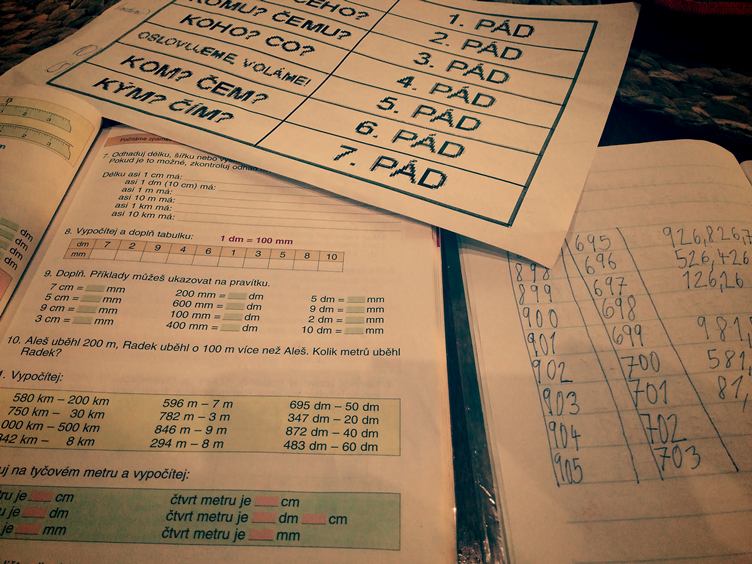 ČEHO?
1. PÁD
KOMU? ČEMU?
2. PÁD
KOHO? CO?
3. PÁD
OSLOVUJEME, VOLÁME!
4. PÁD
KOM? ČEM?
5. PÁD
KÝM? ČÍM?
6. PÁD
7. PÁD
7. Odhaduj délku, šířku nebo
Pokud je to možné, zkontroluj odhad
Délku asi 1 cm má:
asi 1 dm (10 cm) má:
asi 1 m má:
asi 10 m má:
asi 1 km má:
asi 10 km má:
8. Vypočítej a doplň tabulku: 1 dm = 100 mm
dm 7 2 9 4 6 1 3 5 8 10
mm
9. Doplň. Příklady můžeš ukazovat na pravítku.
7 cm = mm 200 mm = dm 5 dm = mm
5 cm = mm 600 mm = dm 9 dm = mm
9 cm = mm 100 mm = dm 2 dm = mm
3 cm = mm 400 mm = dm 10 dm = mm
10. Aleš uběhl 200 m, Radek uběhl o 100 m více než Aleš. Kolik metrů uběhl
Radek?
1. Vypočítej:
580 km – 200 km 596 m – 7 m 695 dm – 50 dm
750 km – 30 km 782 m – 3 m 347 dm – 20 dm
000 km – 500 km 846 m – 9 m 872 dm – 40 dm
942 km – 8 km 294 m – 8 m 483 dm – 60 dm
uj na tyčovém metru a vypočítej:
ru je cm čtvrt metru je cm
u je dm čtvrt metru je dm cm
je mm čtvrt metru je mm
dm
dm
dm
dm
695 926,826,7
898 696 526,426
899 697 126,26
900 698
901 699 981,
902 700 581,
903 701 81,
904 702
905 703